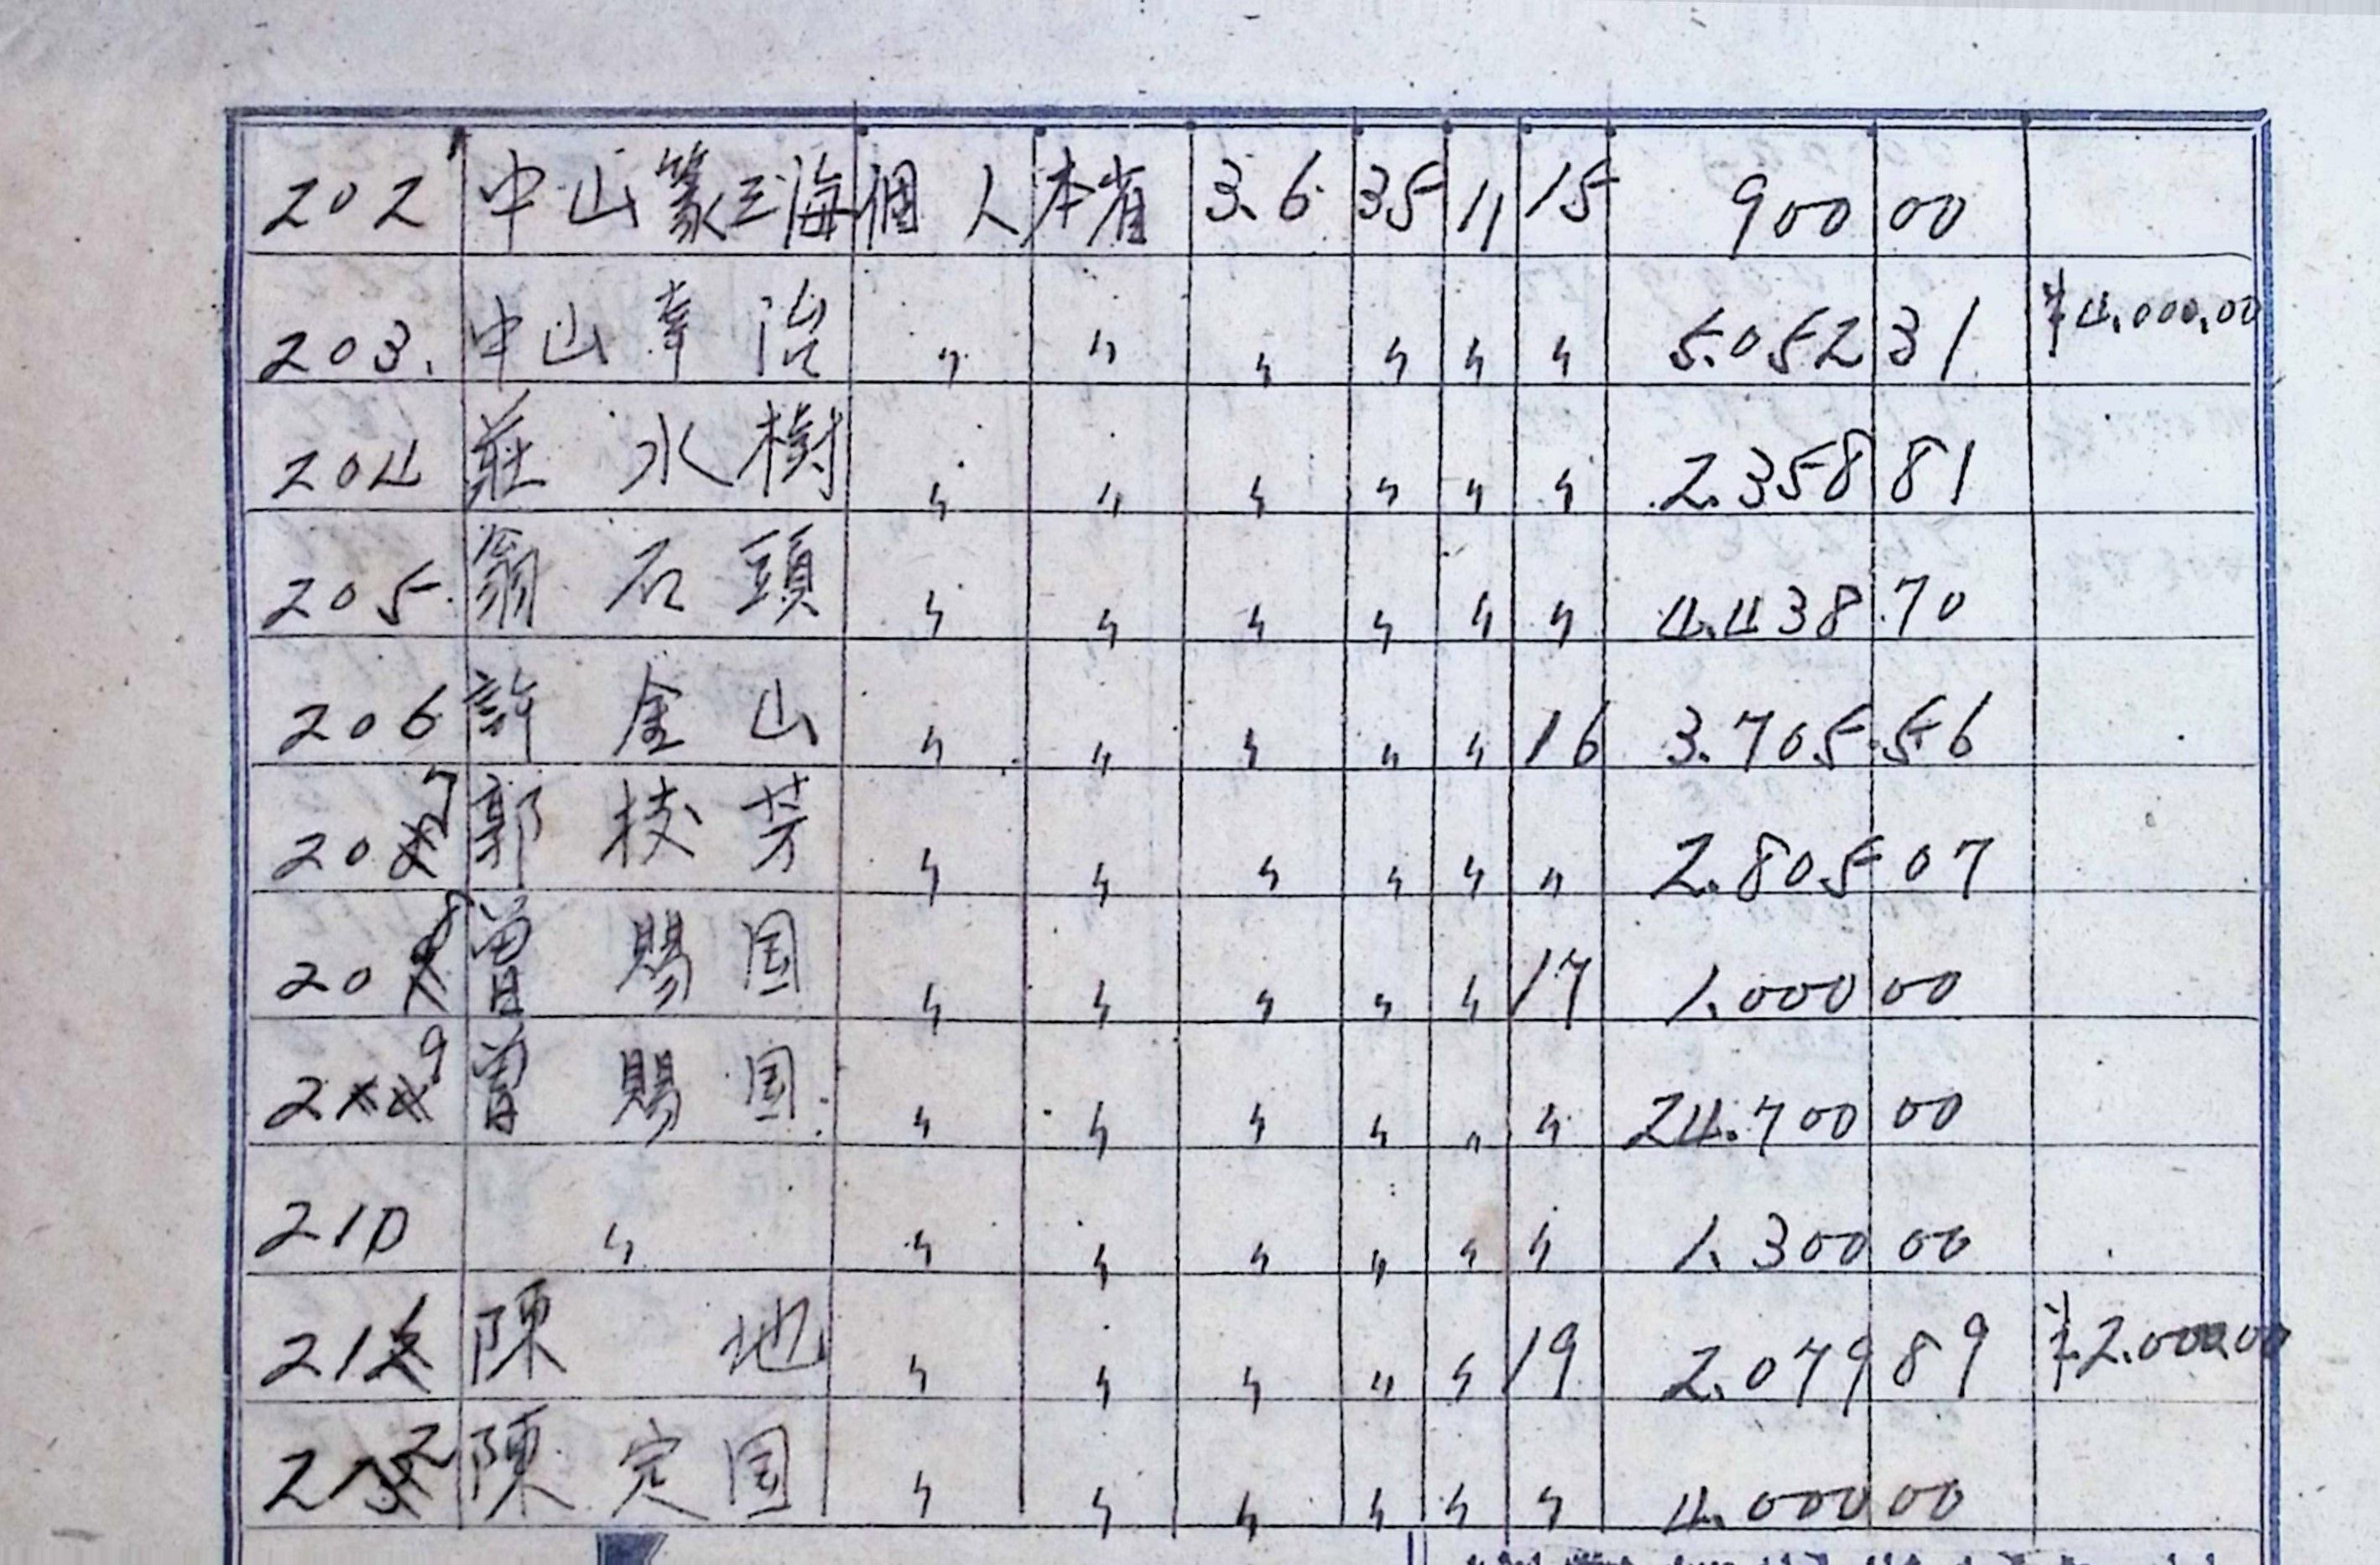 202 中山篆三海 個人 本省 3.6 35 11 15 900 00
203. 中山幸治 〃 〃 〃 〃 〃 〃 5.052 31 ¥4.000.00
204 莊水樹 〃 〃 〃 〃 〃 〃 2.358 81
205. 翁石頭 〃 〃 〃 〃 〃 〃 4.438 70
206 許金山 〃 〃 〃 〃 〃 16 3.705 56
207 郭枝芳 〃 〃 〃 〃 〃 〃 2.805 07
208 曾賜国 〃 〃 〃 〃 〃 17 1.000 00
209 曾賜国 〃 〃 〃 〃 〃 〃 24.700 00
210 〃 〃 〃 〃 〃 〃 〃 1.300 00
211 陳地 〃 〃 〃 〃 〃 19 2.079 89 ¥2.000.00
212 陳定国 〃 〃 〃 〃 〃 〃 4.000 00